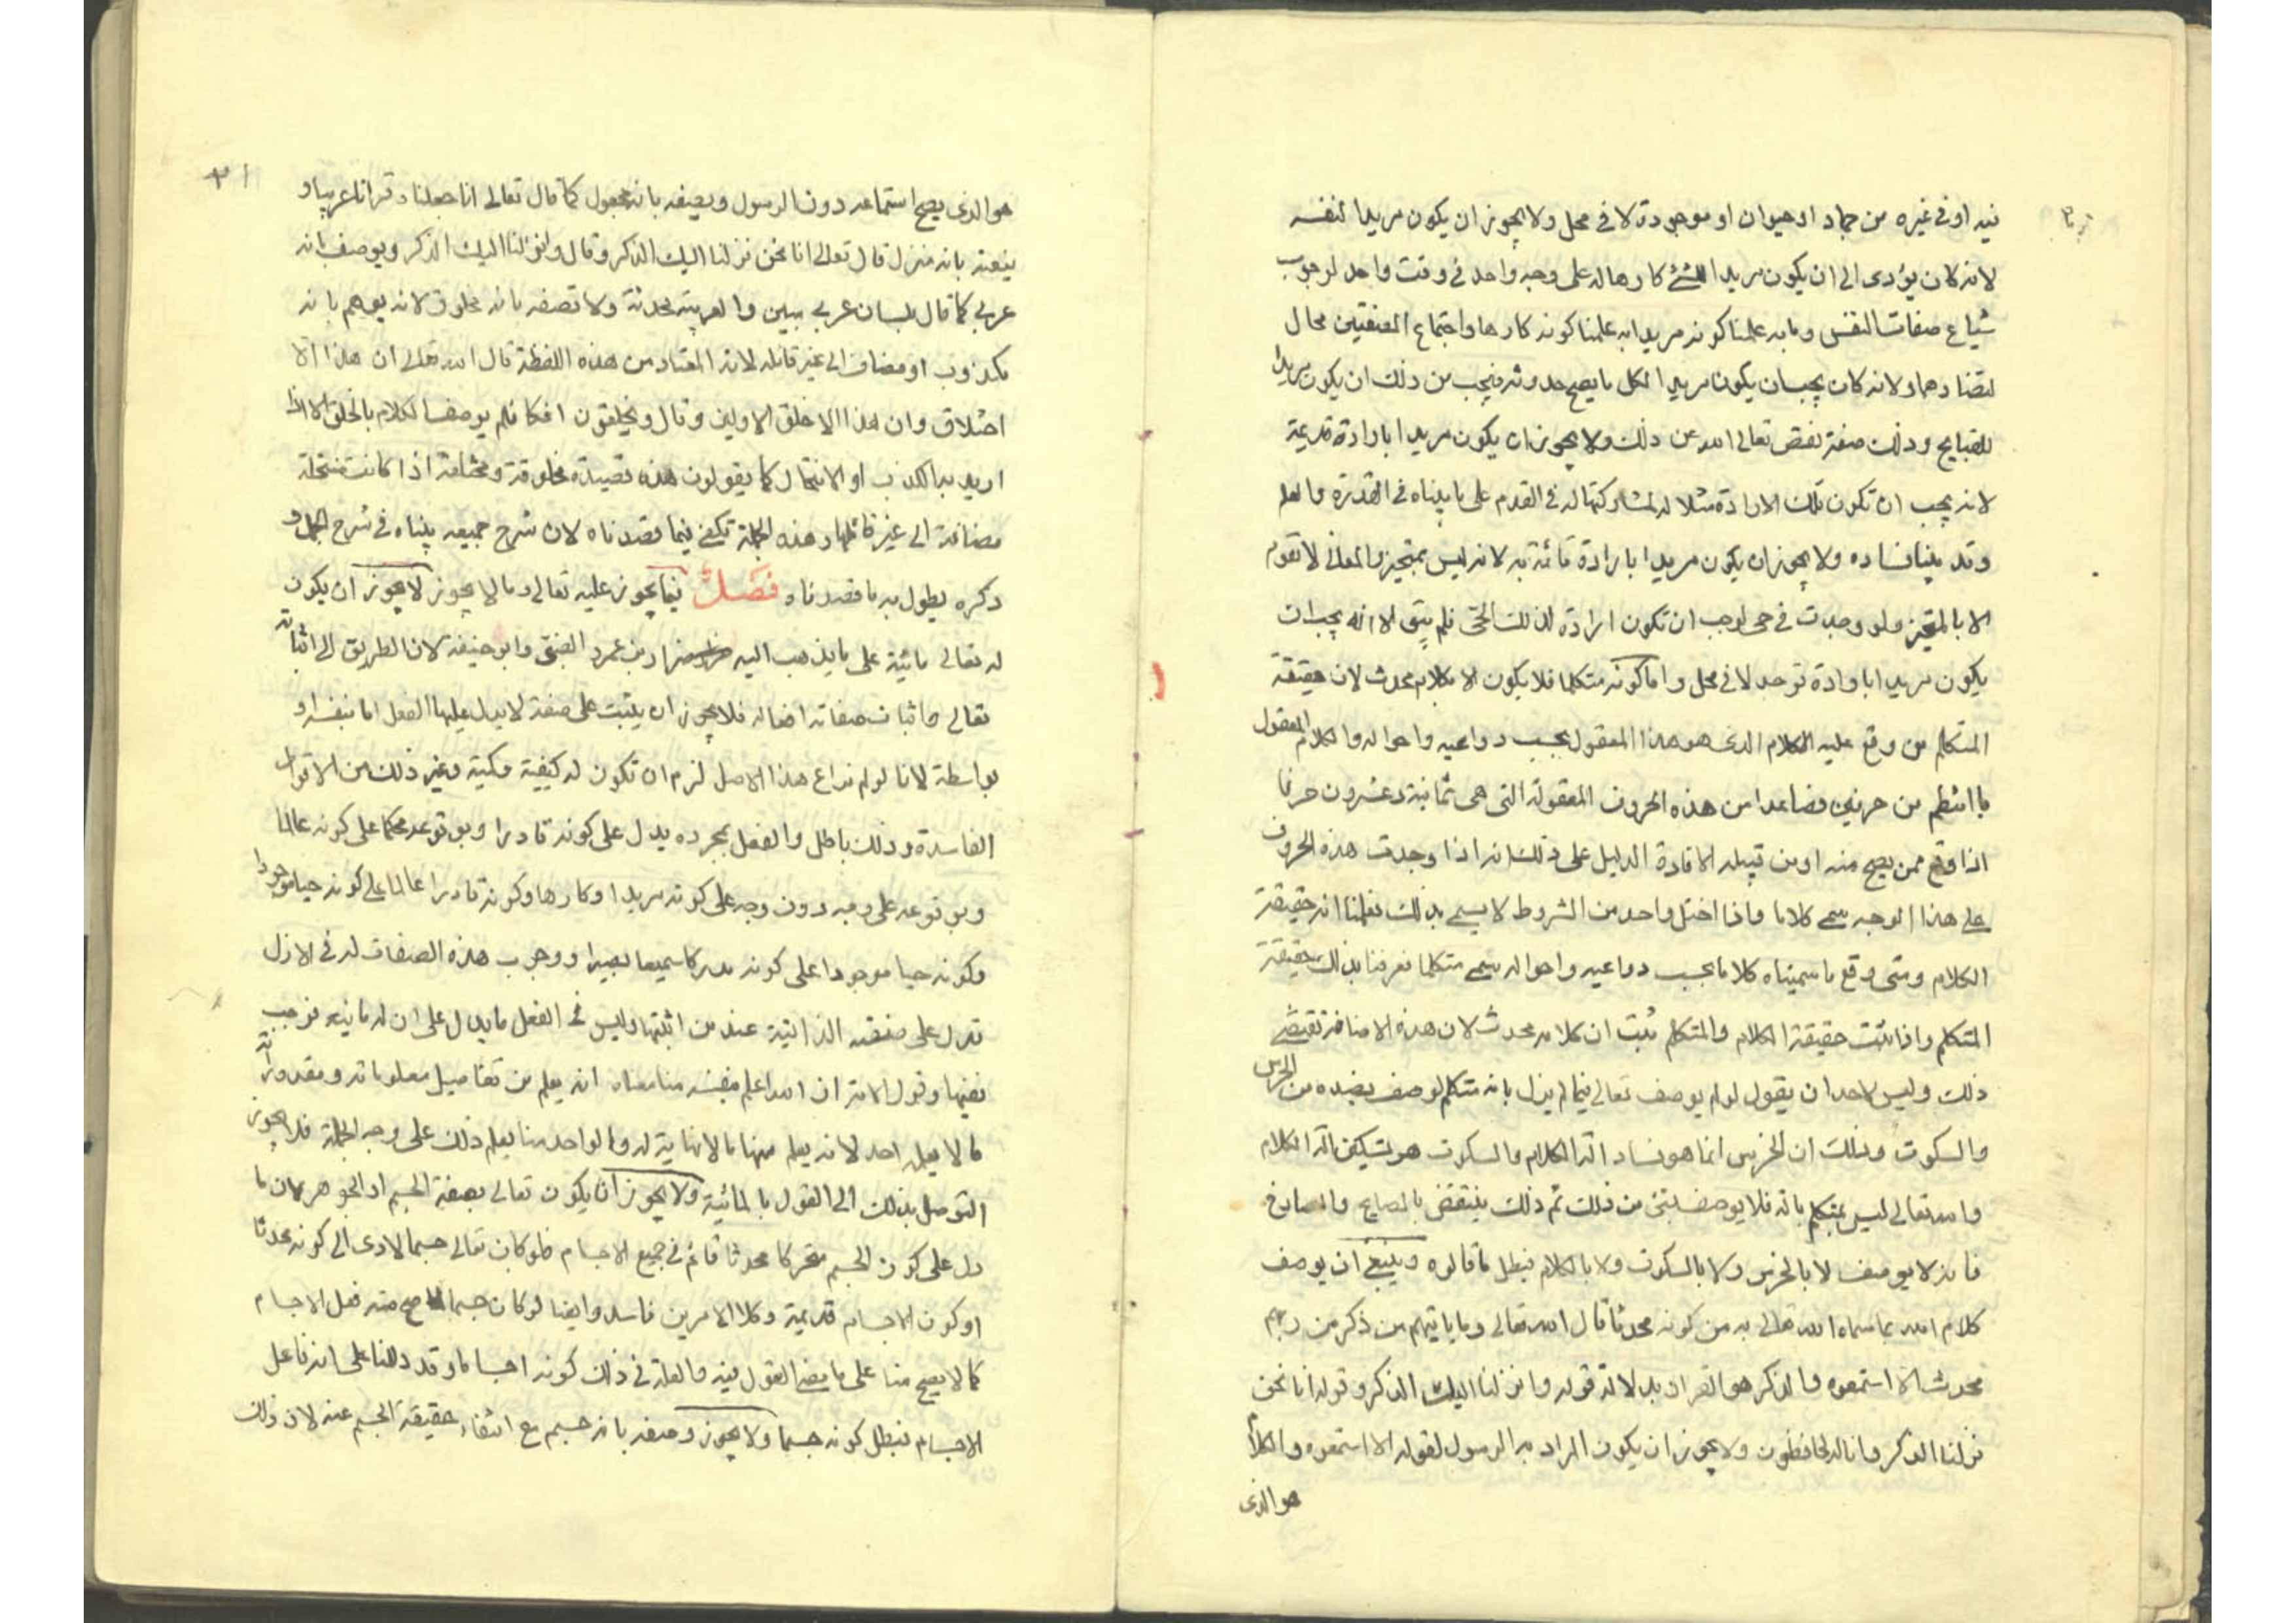 فيه او في غيره من جماد او حيوان او موجودة لا في محل ولا يجوز ان يكون مريدا لنفسه
لانه كان يؤدى الى ان يكون مريدا للشئ كارها له على وجه واحد في وقت واحد لوجوب
شياع صفات النفس وما به علمنا كونه مريدا به علمنا كونه كارها واجتماع الصفتين محال
لتضادهما ولانه كان يجب ان يكون مريدا لكل ما يصح حدوثه فيجب من ذلك ان يكون مريدا
للقبايح وذلك صفة نقص تعالى الله عن ذلك ولا يجوز ان يكون مريدا بارادة قديمة
لانه يجب ان تكون تلك الارادة مثلا له لمشاركتها له في القدم على ما بيناه في القدرة والعلم
وقد بينا فساده ولا يجوز ان يكون مريدا بارادة قائمة به لانه ليس بمتحيز والمعانى لا تقوم
الا بالمتحيز ولو وجدت في حى لوجب ان تكون ارادة لذلك الحى فلم يبق الا انه يجب ان
يكون مريدا بارادة توجد لا في محل واما كونه متكلما فلا يكون الا بكلام محدث لان حقيقة
المتكلم من وقع عليه الكلام الذى هو هذا المعقول بحسب دواعيه واحواله والكلام المعقول
ما انتظم من حرفين فصاعدا من هذه الحروف المعقولة التى هى ثمانية وعشرون حرفا
اذا وقع ممن يصح منه او من قبيله الافادة الدليل على ذلك انه اذا وجدت هذه الحروف
على هذا الوجه سمى كلاما واذا اختل واحد من الشروط لا يسمى بذلك فعلمنا انه حقيقة
الكلام ومتى وقع ما سميناه كلاما بحسب دواعيه واحواله سمى متكلما فعرفنا بذلك حقيقة
المتكلم واذا ثبت حقيقة الكلام والمتكلم ثبت ان كلامه محدث لان هذه الاضافة تقتضى
ذلك وليس لاحد ان يقول لو لم يوصف تعالى فيما لم يزل بانه متكلم لوصف بضده من الخرس
والسكوت وذلك ان الخرس انما هو فساد آلة الكلام والسكوت هو تسكين آلة الكلام
والله تعالى ليس بمتكلم بآلة فلا يوصف بشئ من ذلك ثم ذلك ينتقض بالصايح والصارخ
فانه لا يوصف لا بالخرس ولا بالسكوت ولا بالكلام فبطل ما قالوه وينبغى ان يوصف
كلام الله بما سماه الله تعالى به من كونه محدثا قال الله تعالى وما ياتيهم من ذكر من ربهم
محدث الا استمعوه والذكر هو القران بدلالة قوله وانزلنا اليك الذكر وقوله انا نحن
نزلنا الذكر وانا له لحافظون ولا يجوز ان يكون المراد به الرسول لقوله الا استمعوه والكلام
هو الذى
هو الذى يصح استماعه دون الرسول ويصفه بانه مجعول كما قال تعالى انا جعلناه قرانا عربيا و
ينعته بانه منزل قال تعالى انا نحن نزلنا اليك الذكر وقال وانزلنا اليك الذكر ويوصف بانه
عربى كما قال بلسان عربى مبين والعربية محدثة ولا تصفه بانه مخلوق لانه يوهم بانه
مكذوب او مضاف الى غير قائله لانه المعتاد من هذه اللفظة قال الله تعالى ان هذا الا
اختلاق وان هذا الا خلق الاولين وقال ويخلقون افكا فلم يوصف الكلام بالخلق الا اذا
اريد به الكذب او الانتحال كما يقولون هذه قصيدة مخلوقة ومختلقة اذا كانت منتحلة
مضافة الى غير قائلها وهذه الجملة تكفى فيما قصدناه لان شرح جميعه بيناه في شرح الجمل و
ذكره يطول به ما قصدناه فصل فيما يجوز عليه تعالى وما لا يجوز لا يجوز ان يكون
له تعالى مائية على ما يذهب اليه ضرار بن عمرو الضبى وابو حنيفة لان الطريق الى اثباته
تعالى واثبات صفاته افعاله فلا يجوز ان يثبت على صفة لا يدل عليها الفعل اما بنفسه او
بواسطة لانا لو لم نراع هذا الاصل لزم ان تكون له كيفية وكمية وغير ذلك من الاقوال
الفاسدة وذلك باطل والفعل بمجرده يدل على كونه قادرا وبوقوعه محكما على كونه عالما
وبوقوعه على وجه دون وجه على كونه مريدا او كارها وكونه قادرا عالما على كونه حيا موجودا
وكونه حيا موجودا على كونه مدركا سميعا بصيرا ووجوب هذه الصفات له في الازل
تدل على صفته الذاتية عند من اثبتها وليس في الفعل ما يدل على ان له مائية فوجب
نفيها وقول الامة ان الله اعلم بنفسه منا معناه انه يعلم من تفاصيل معلوماته ومقدوراته
ما لا يعلمه احد لانه يعلم منها ما لا نهاية له والواحد منا يعلم ذلك على وجه الجملة فلا يجوز
التوصل بذلك الى القول بالمائية ولا يجوز ان يكون تعالى بصفة الجسم او الجوهر لان ما
دل على كون الجسم متحركا محدثا قائم في جميع الاجسام فلو كان تعالى جسما لادى الى كونه محدثا
او كون الاجسام قديمة وكلا الامرين فاسد وايضا لو كان جسما لما صح منه فعل الاجسام
كما لا يصح منا على ما مضى القول فيه والعلة في ذلك كونه اجساما وقد دللنا على انه فاعل
الاجسام فبطل كونه جسما ولا يجوز وصفه بانه جسم مع انتفاء حقيقة الجسم عنه لان ذلك